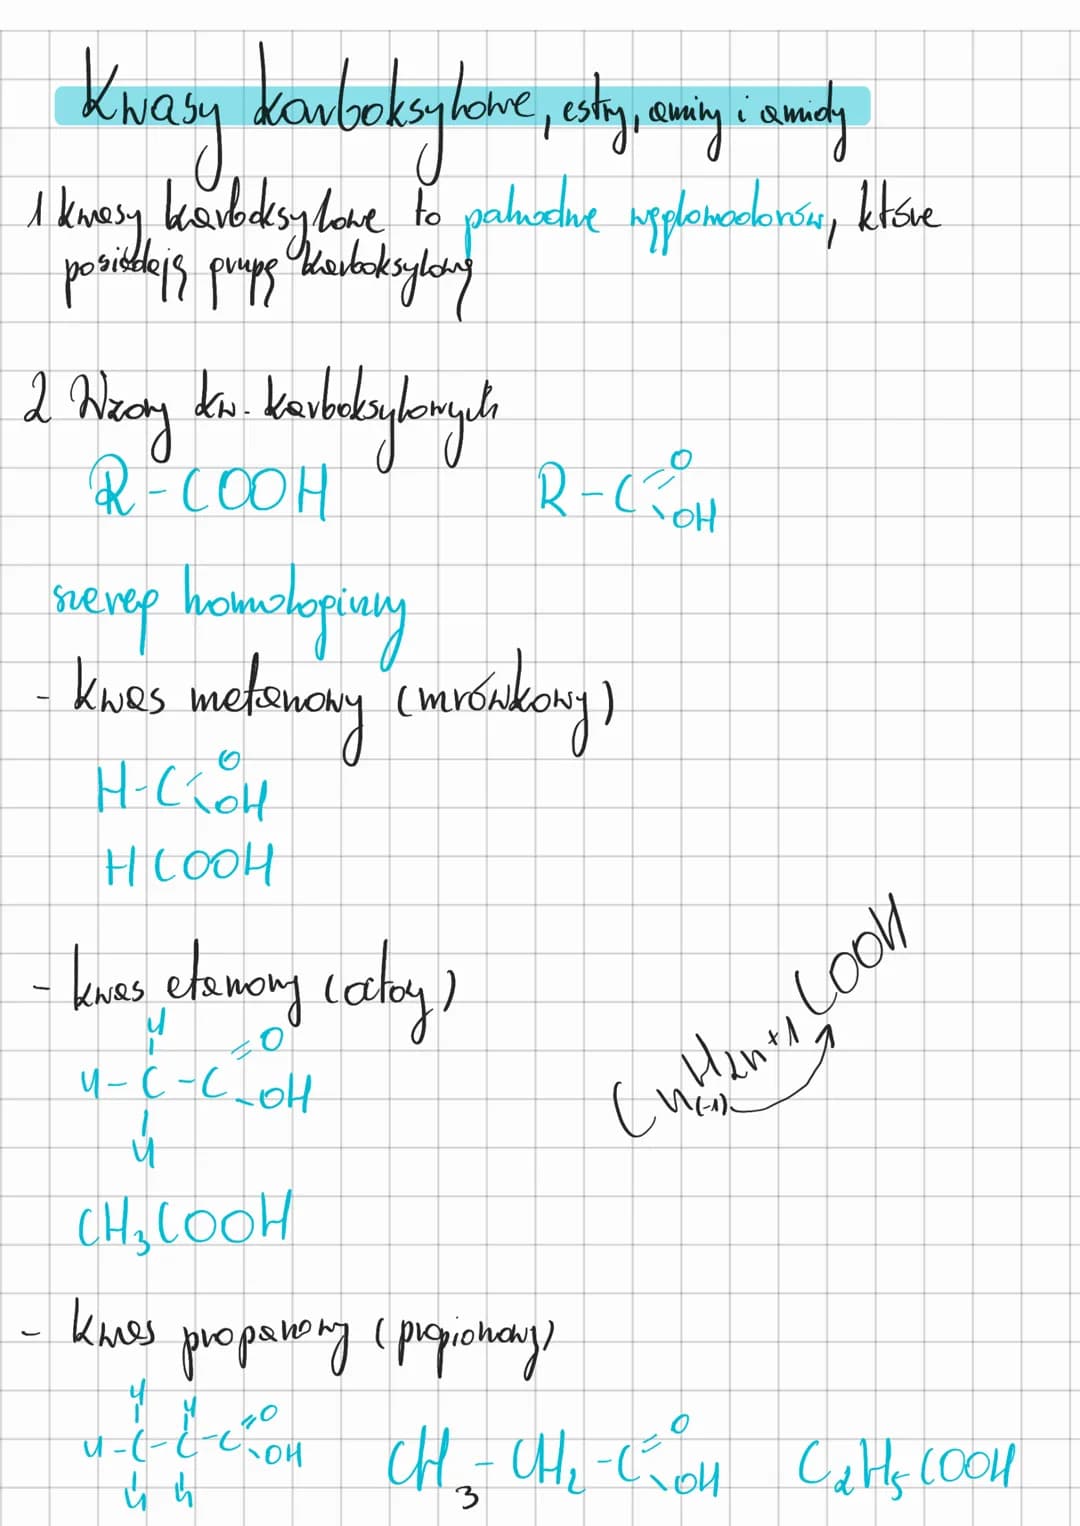 Kwasy karboksylowe, estry, aminy i amidy
1 kwasy karboksylowe to pochodne węglowodorów, które
posiadają grupę karboksylową
2 Wzory kw. karboksylowych
R-COOH
R-C=O
OH
szereg homologiczny
- kwas metanowy (mrówkowy)
O
H-C-OH
HCOOH
- kwas etanowy (octowy)
H
=O
H-C-C-OH
H
CH3COOH
CnH2n+1COOH
(-1)
- kwas propanowy (propionowy)
H H
H-C-C-C=O
OH
H H
CH3-CH2-C=O
OH
C2H5COOH